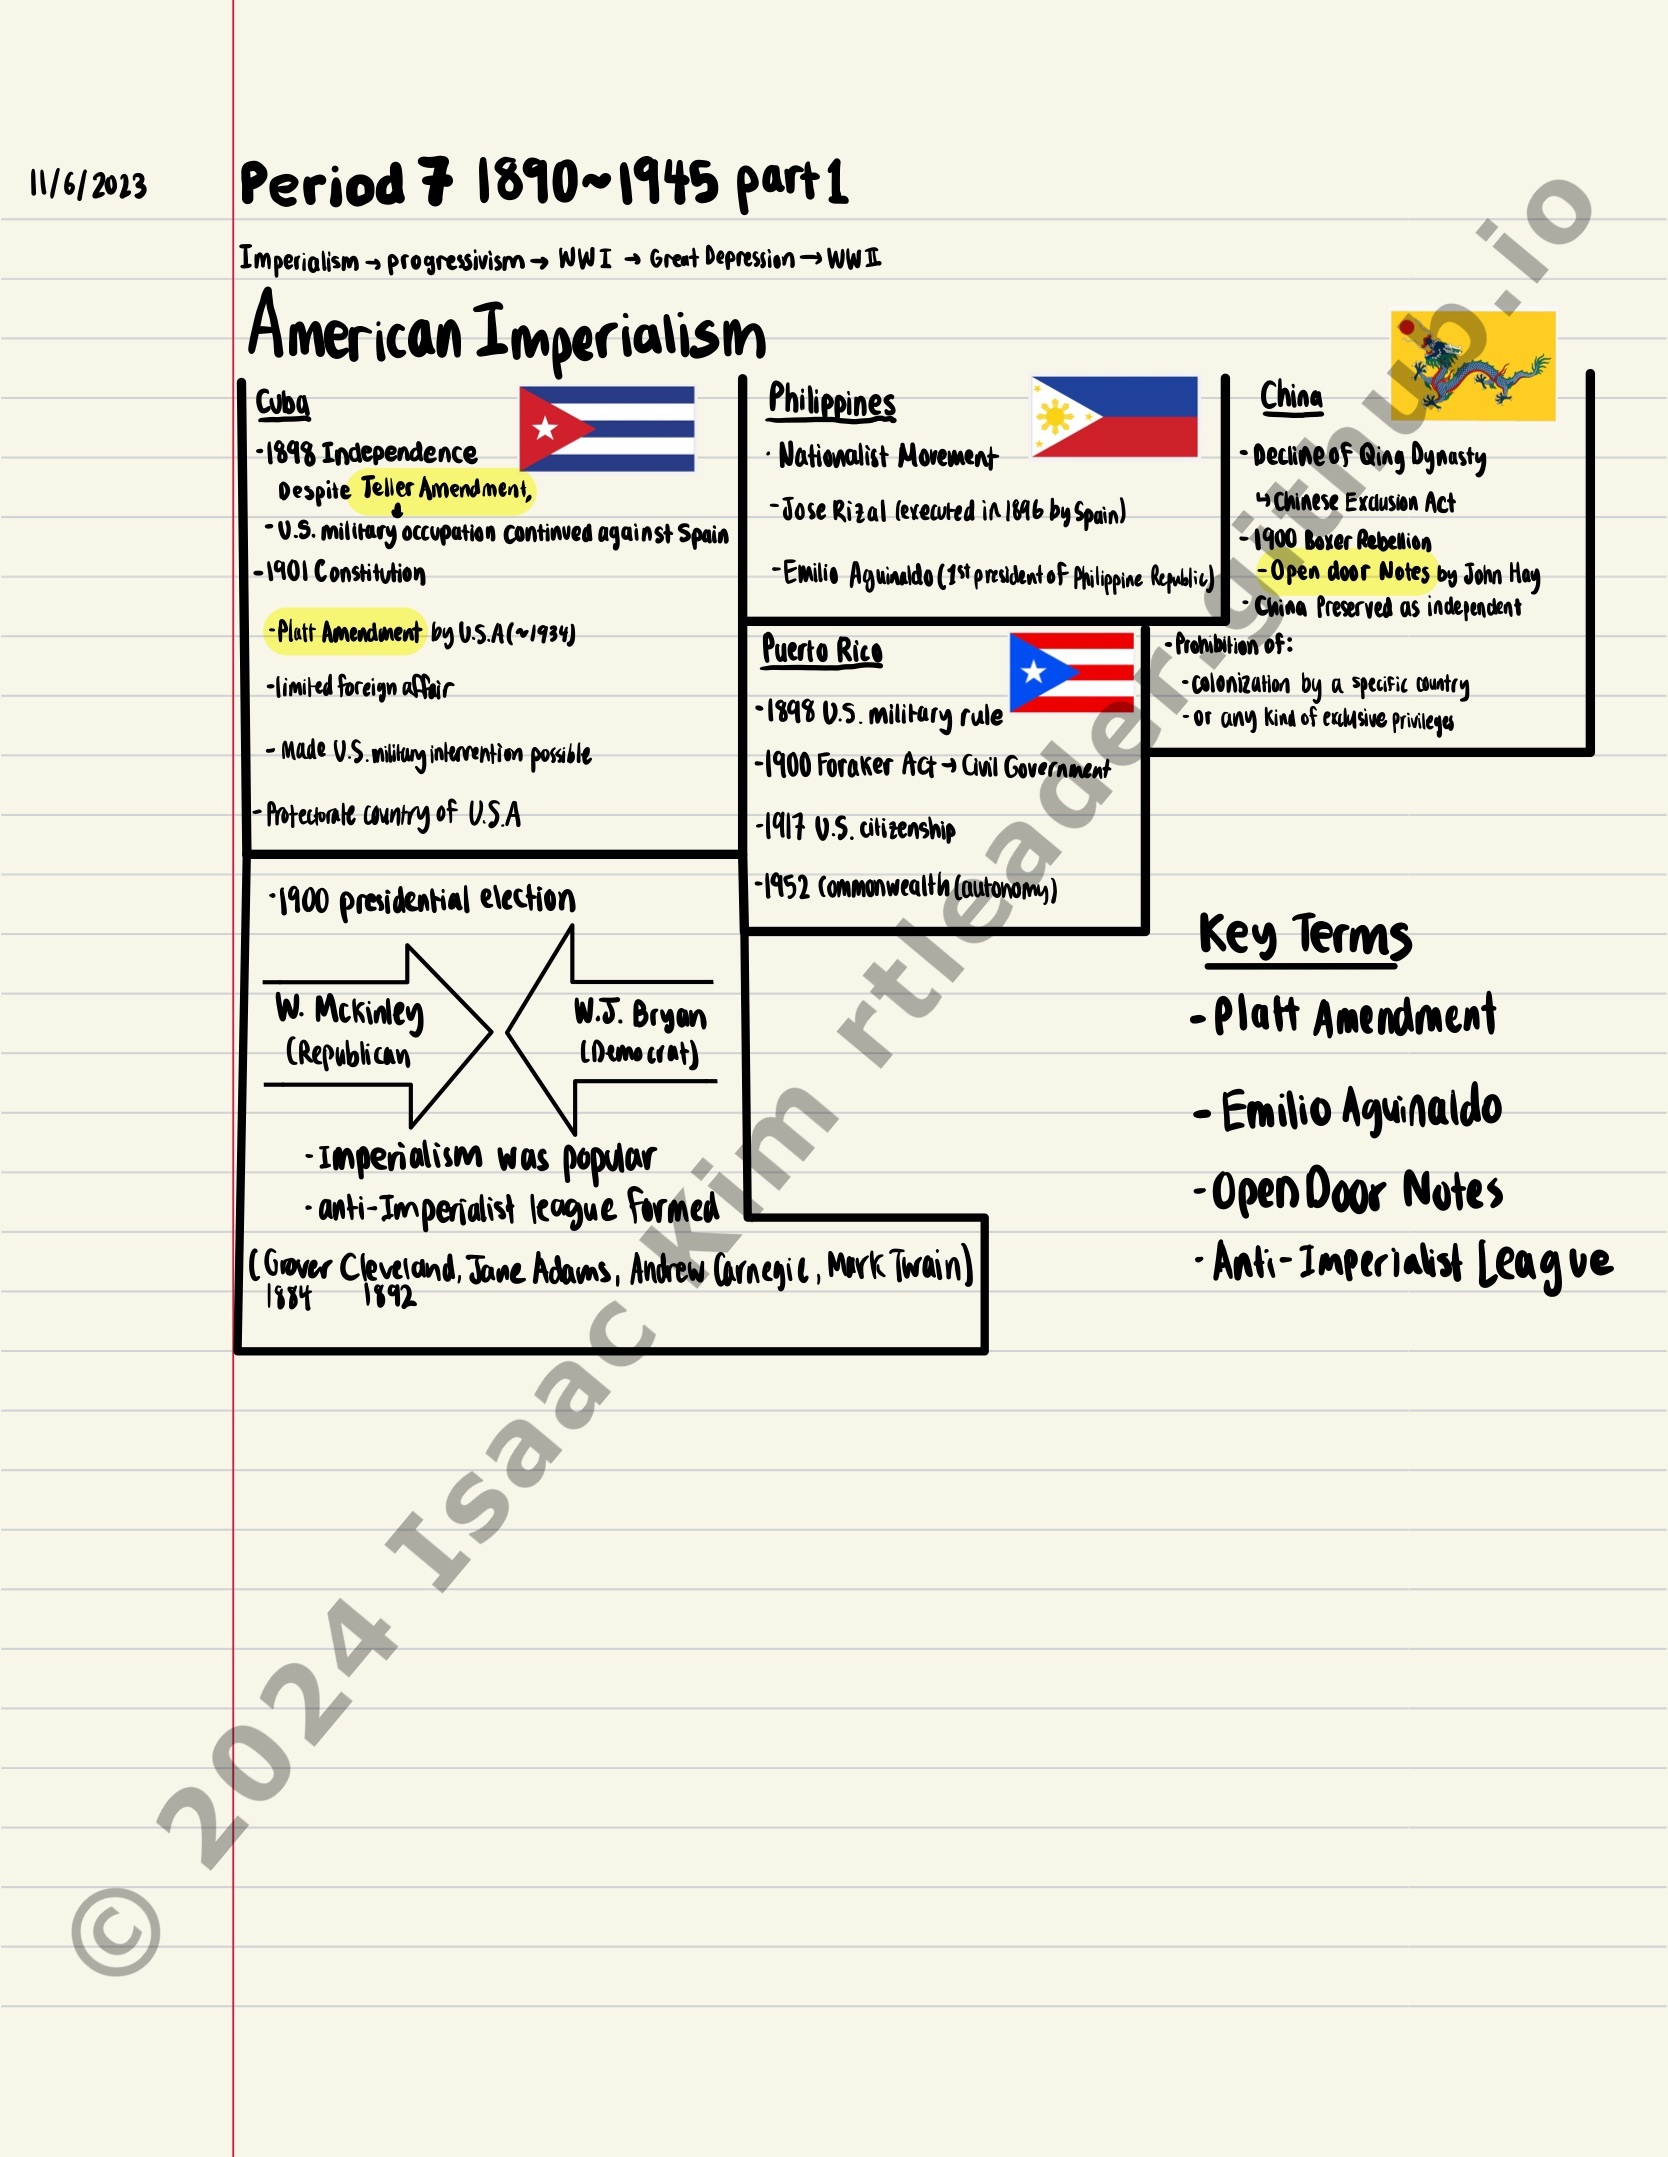 11/6/2023
Period 7 1890~1945 part 1
Imperialism → progressivism → WW I → Great Depression → WW II
American Imperialism
Cuba
-1898 Independence
Despite Teller Amendment,
-U.S. military occupation continued against Spain
-1901 Constitution
-Platt Amendment by U.S.A (~1934)
-limited foreign affair
- Made U.S. military intervention possible
-Protectorate country of U.S.A
Philippines
· Nationalist Movement
-Jose Rizal (executed in 1896 by Spain)
-Emilio Aguinaldo (1st president of Philippine Republic)
China
- Decline of Qing Dynasty
↳ Chinese Exclusion Act
-1900 Boxer Rebellion
-Open door Notes by John Hay
- China Preserved as independent
-Prohibition of:
-colonization by a specific country
-or any kind of exclusive privileges
Puerto Rico
-1898 U.S. military rule
-1900 Foraker Act → Civil Government
-1917 U.S. citizenship
-1952 Commonwealth (autonomy)
-1900 presidential election
W. Mckinley
(Republican
W.J. Bryan
(Democrat)
-Imperialism was popular
-anti-Imperialist league formed
(Grover Cleveland, Jane Adams, Andrew Carnegie, Mark Twain)
1884 1892
Key Terms
-Platt Amendment
-Emilio Aguinaldo
-Open Door Notes
-Anti-Imperialist League
© 2024 Isaac Kim rtleader.github.io